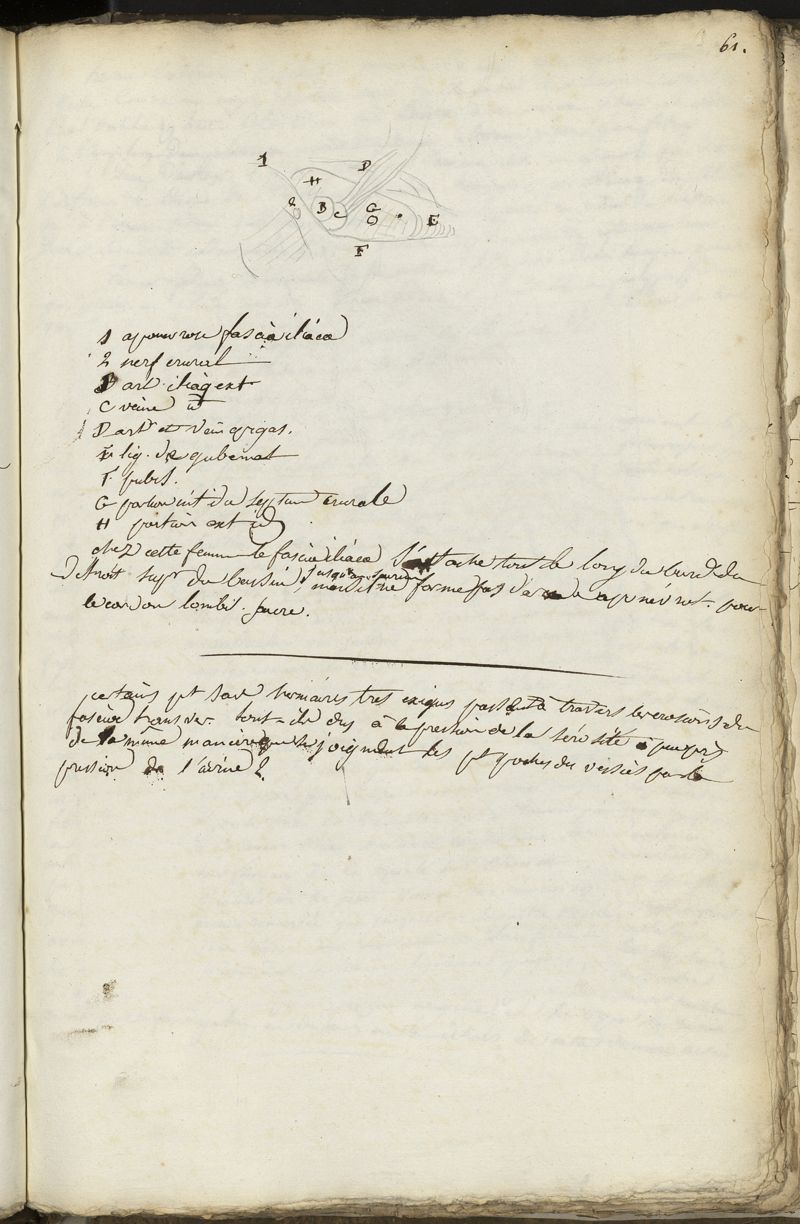 61.
1 D
H
2 B C G
E
F
1 aponevrose fascia iliaca
2 nerf crural
B art. iliaq ext
C veine id
D art et vein epigas.
E lig. de gubernat
F pubis.
G portion int du septum crurale
H portion ext id
chez cette femme le fascia iliaca s'attache tout le long du bord du
detroit supr du bassin, jusqu'au
mais il ne forme pas d' aponévrot. pour
le cordon lombo. sacré.
certains pt sac herniaires tres exigus passent à travers les du
fascia transver. sont-ils dus à la pression de la serosité a peu près
de la même maniere que se joignent les pt poches des vessies par la
pression de l'urine?